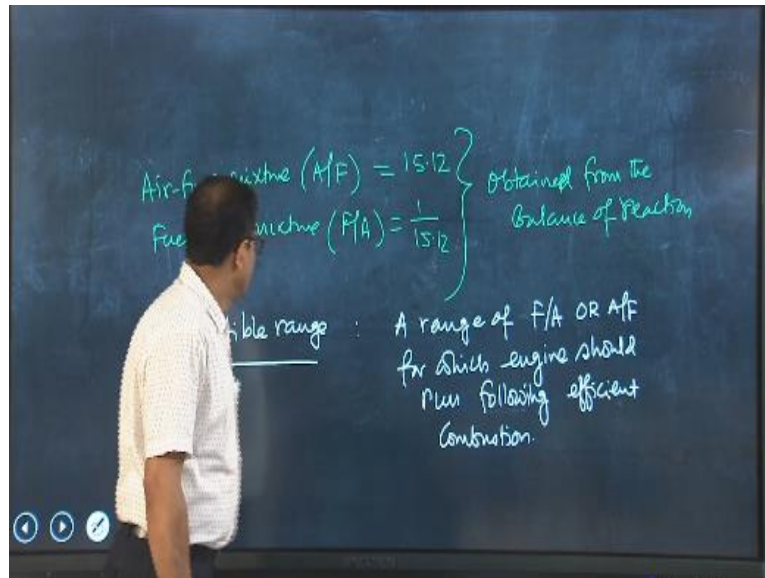 Air-f mixture (A/F) = 15.12
Fue mixture (F/A) = 1/15.12
Obtained from the
Balance of reaction
ible range : A range of F/A OR A/F
for which engine should
run following efficient
Combustion.